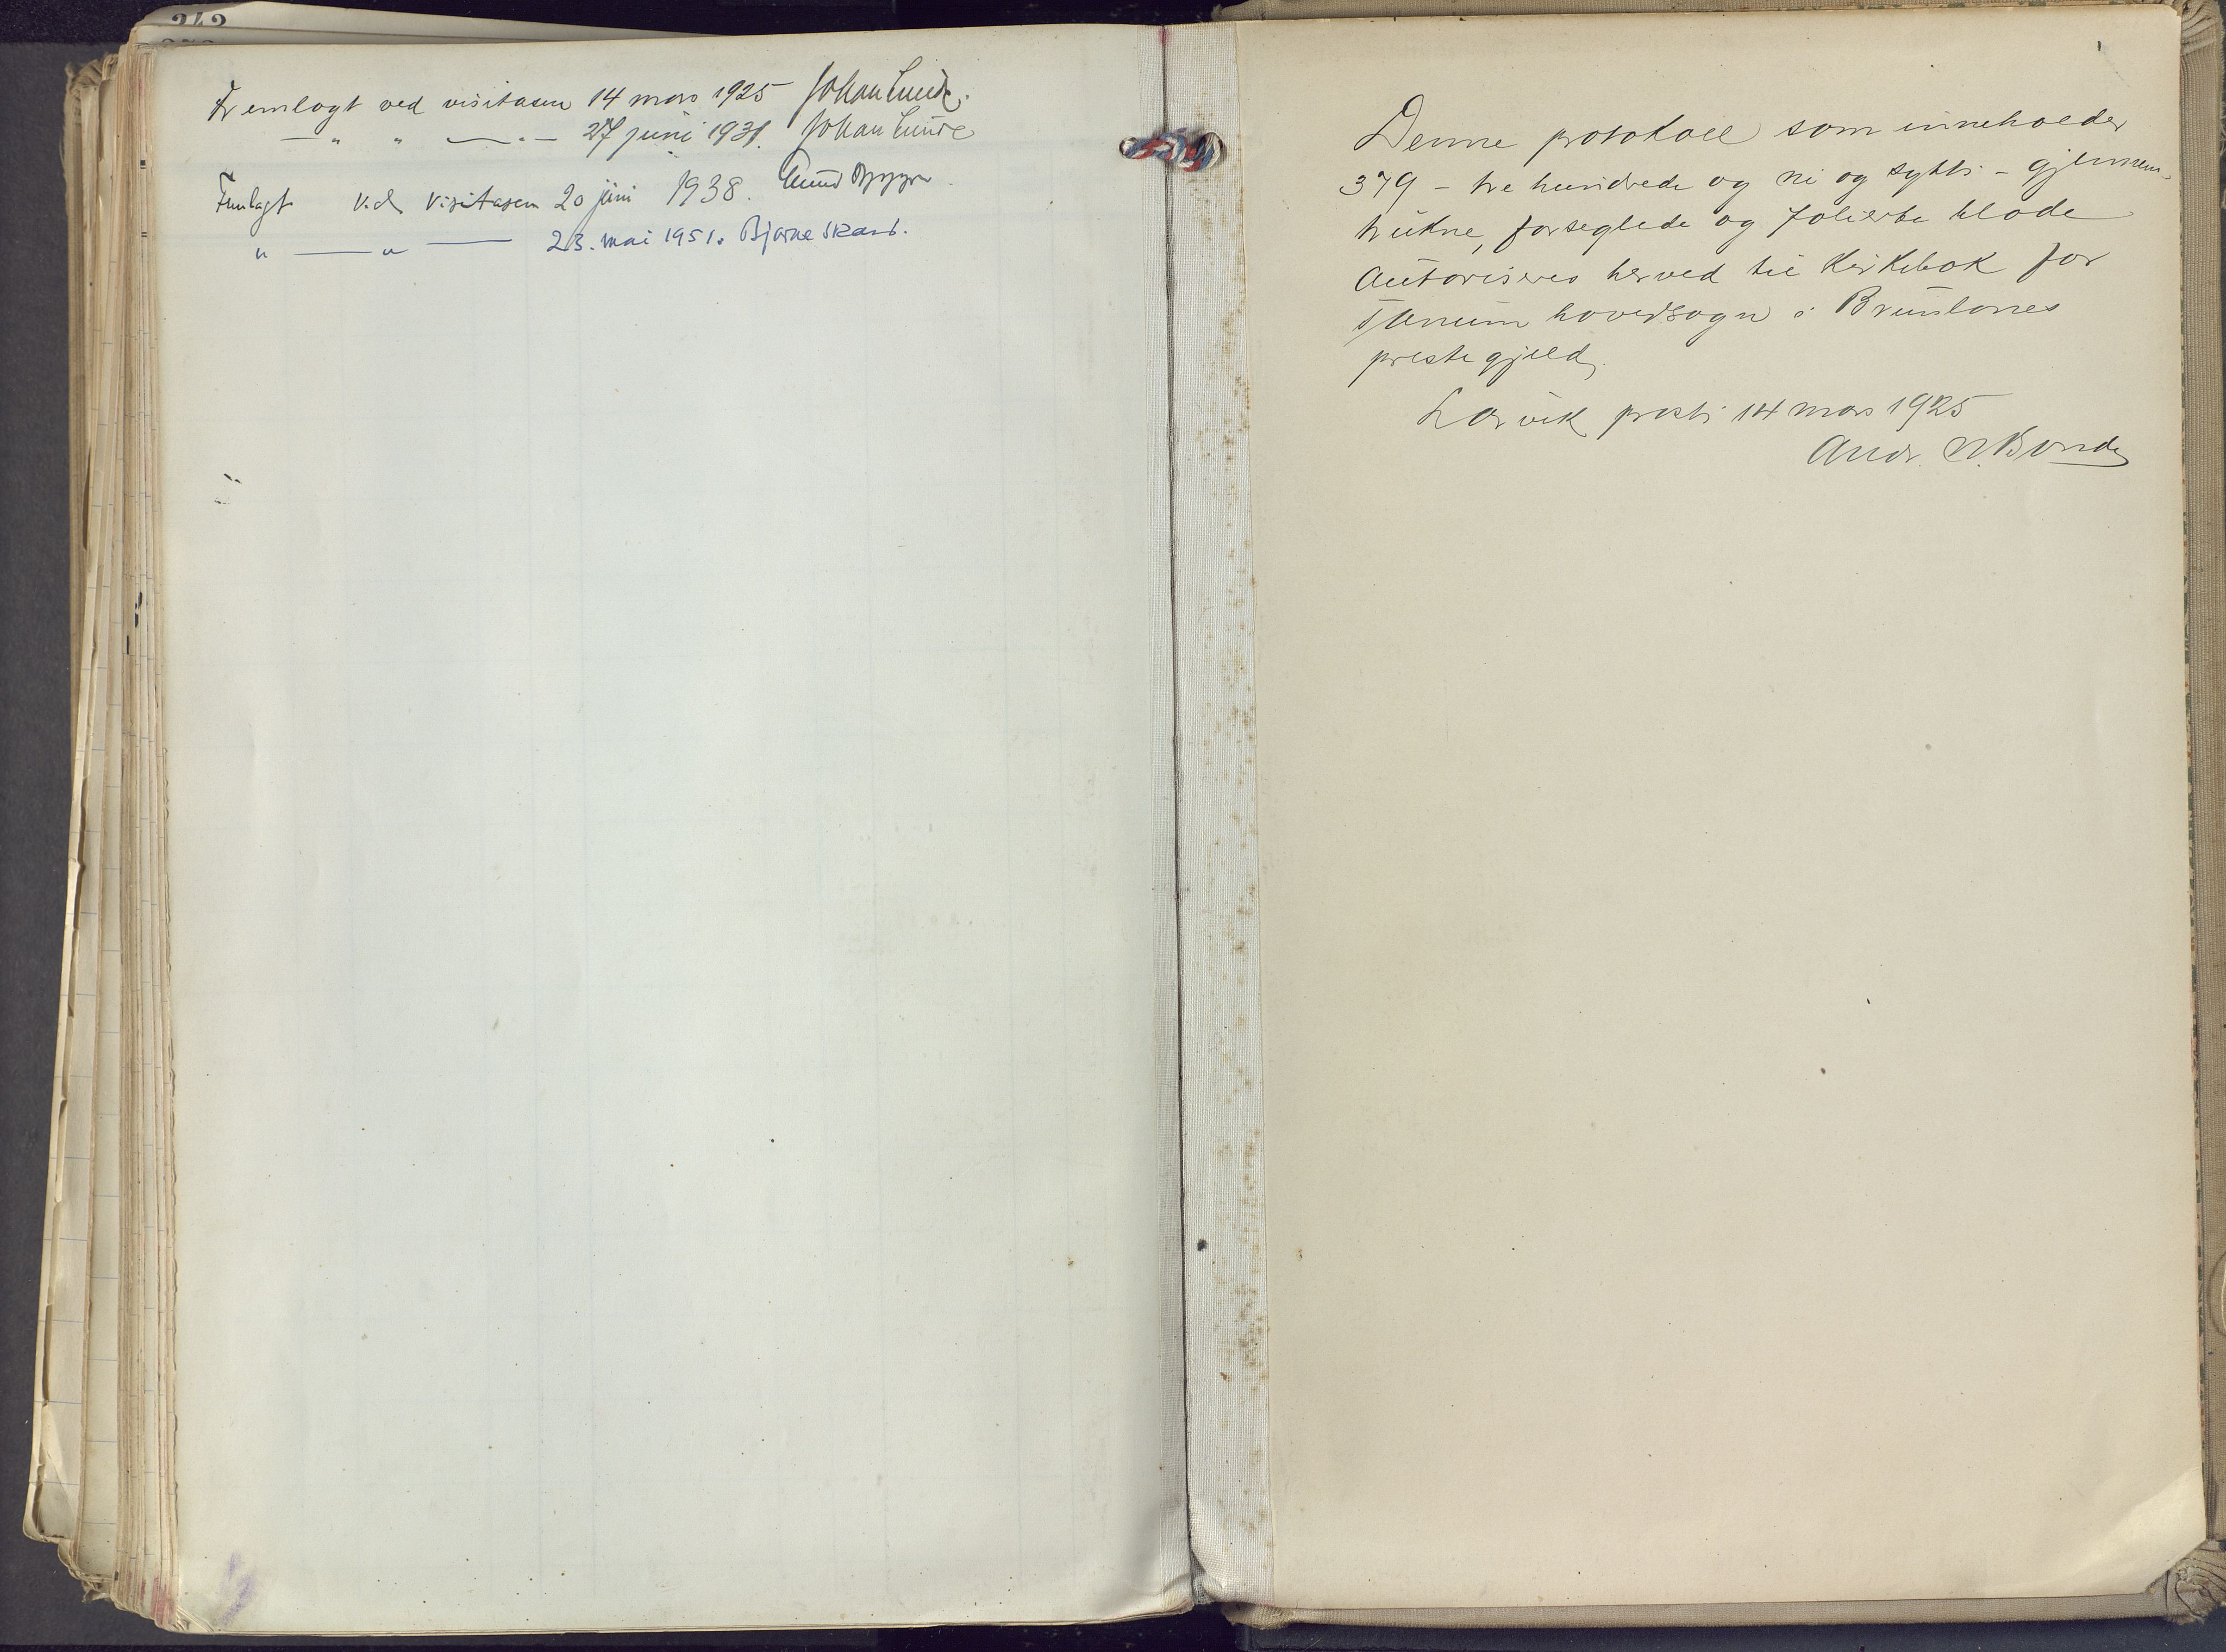 Fremlagt ved visitasen 14 mars 1925 Johan Lunde.
— " " — " — 27 juni 1931. Johan Lunde
Fremlagt v.d. visitasen 20 juni 1938.
" — " — 23. mai 1951. Bjarne Skard.
Denne protokoll som inneholder
379 - tre hundrede og ni og sytti - gjennem-
trukne, forseglede og folierte blade
autoriseres herved til kirkebok for
Tanum hovedsogn i Brunlanes
prestegjeld.
Larvik prosti 14 mars 1925
Andr. N. Bonde